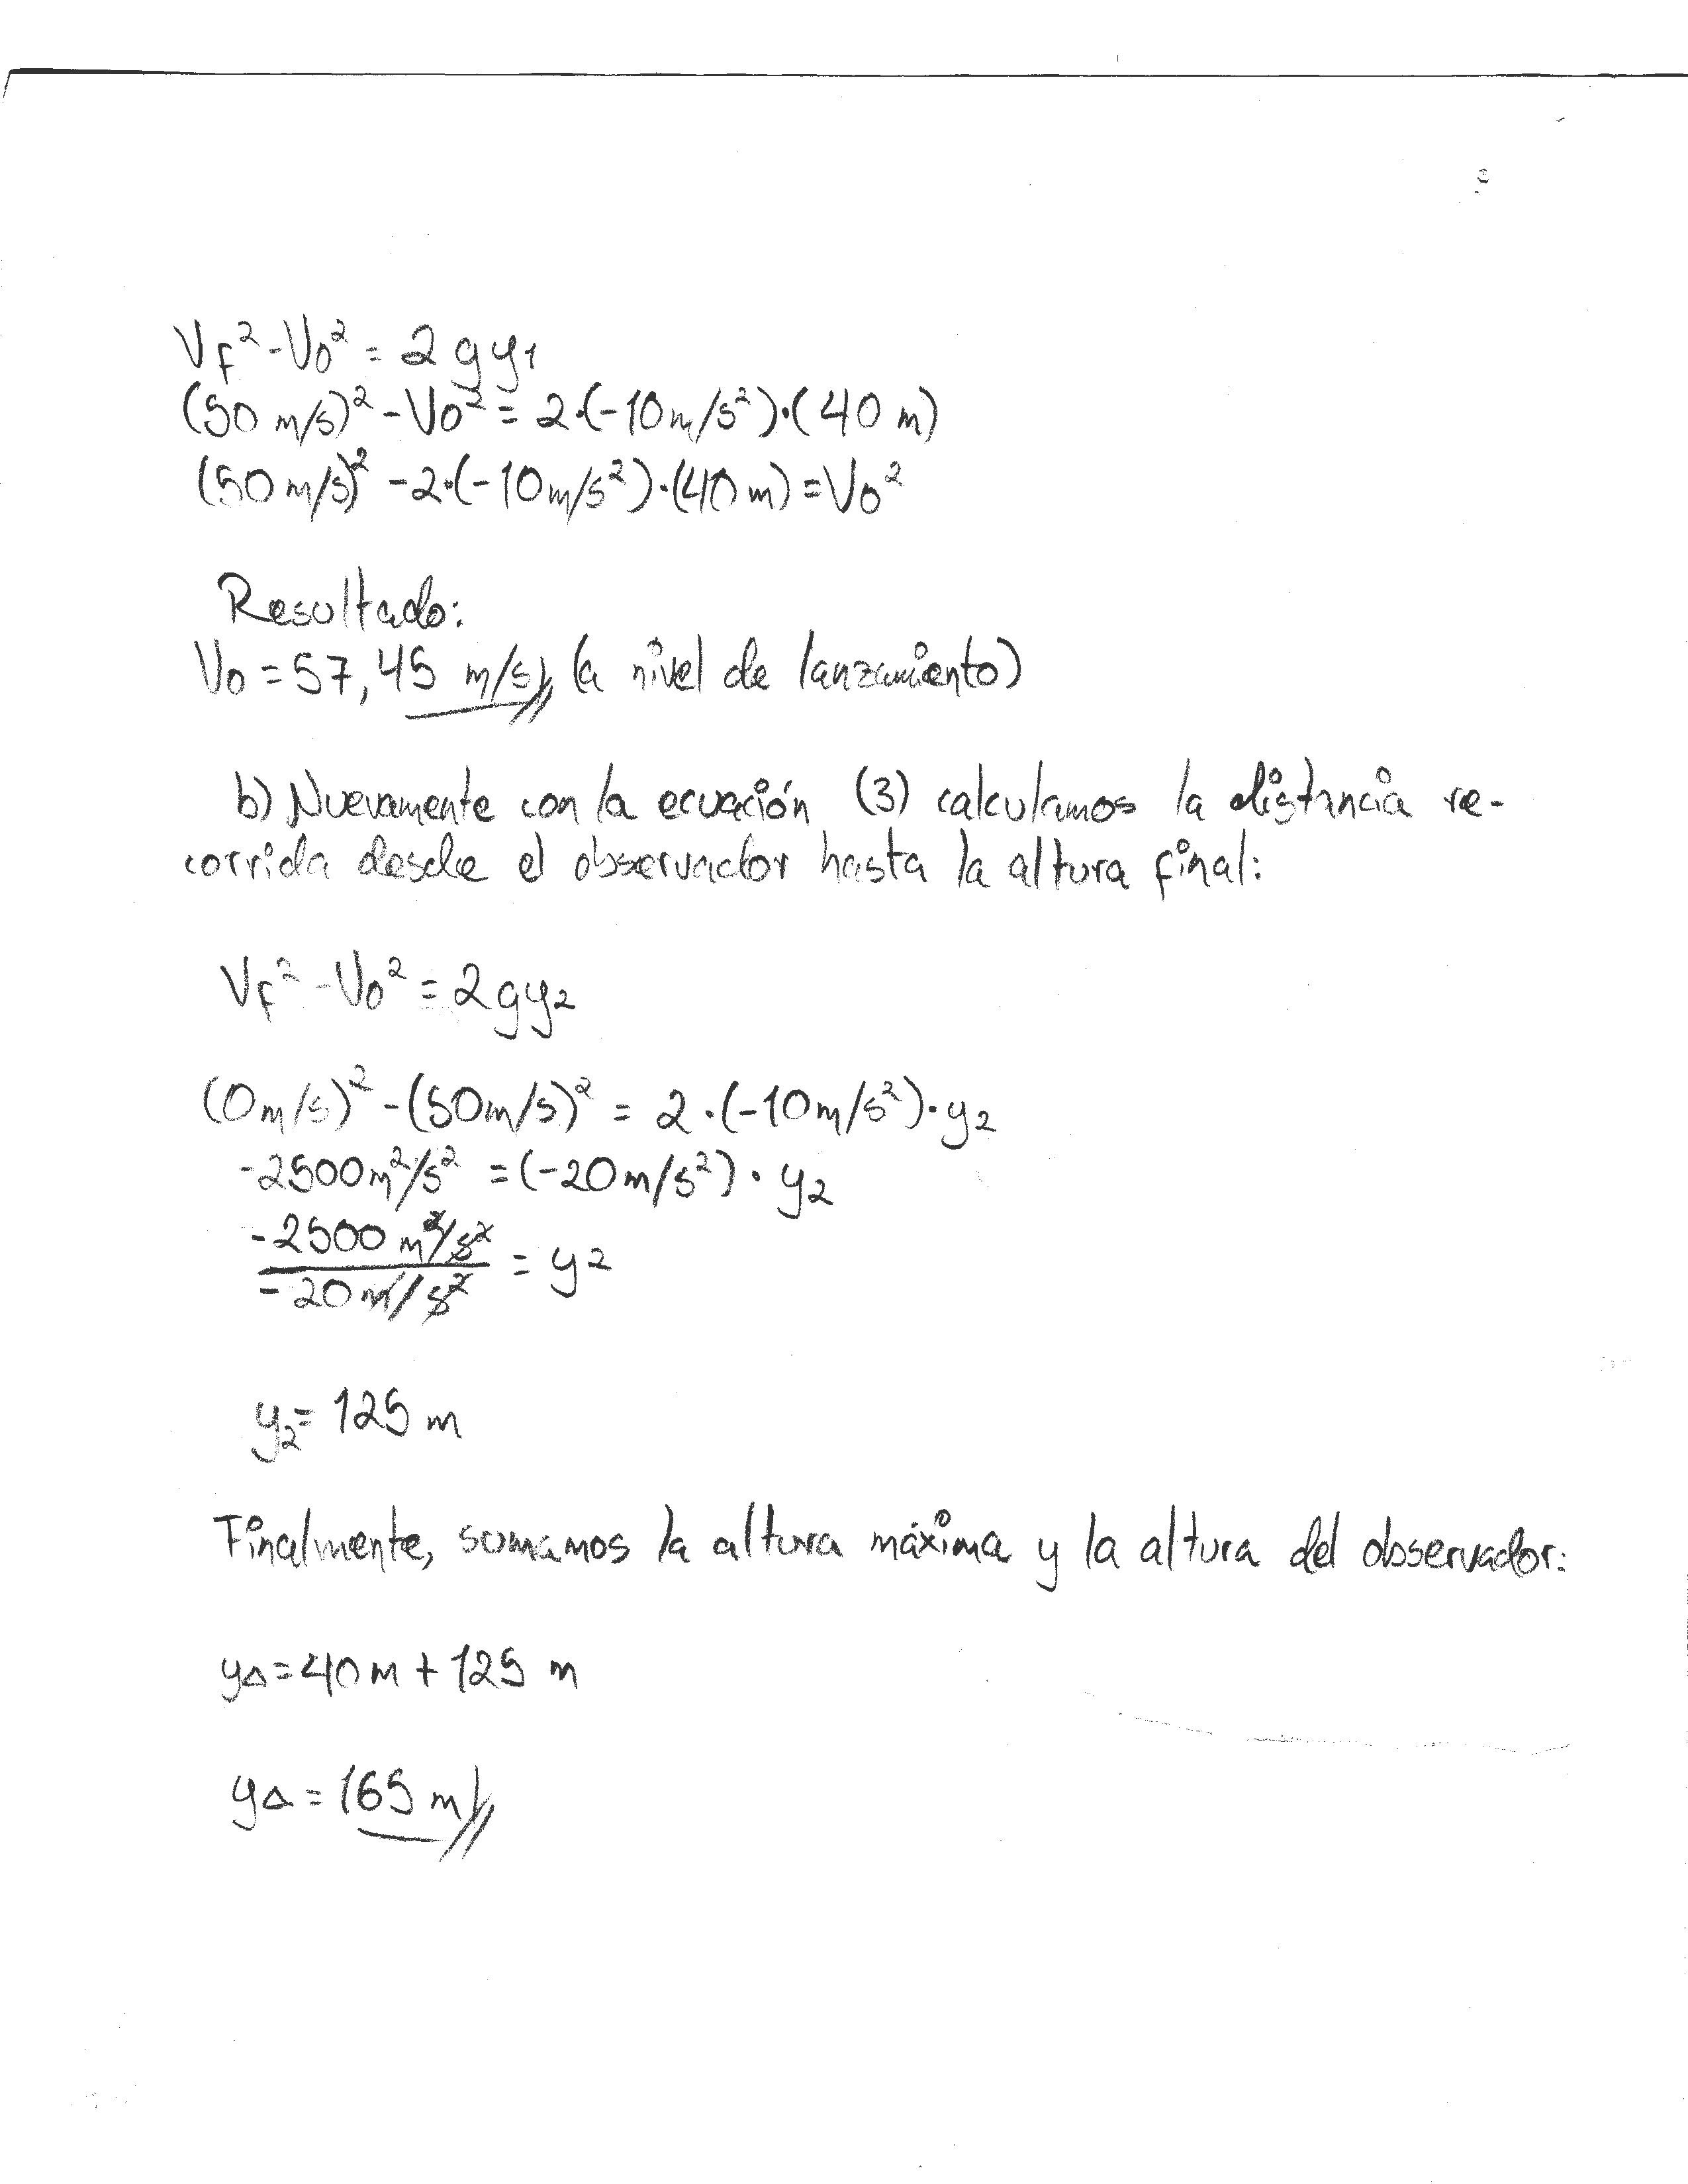 Vf² - Vo² = 2 g y₁
(50 m/s)² - Vo² = 2·(-10 m/s²)·(40 m)
(50 m/s)² - 2·(-10 m/s²)·(40 m) = Vo²
Resultado:
Vo = 57,45 m/s (a nivel de lanzamiento)
b) Nuevamente con la ecuación (3) calculamos la distancia re-
corrida desde el observador hasta la altura final:
Vf² - Vo² = 2gy₂
(0 m/s)² - (50 m/s)² = 2·(-10 m/s²)·y₂
-2500 m²/s² = (-20 m/s²)·y₂
-2500 m²/s²
-20 m/s² = y₂
y₂ = 125 m
Finalmente, sumamos la altura máxima y la altura del observador:
yΔ = 40 m + 125 m
yΔ = 165 m